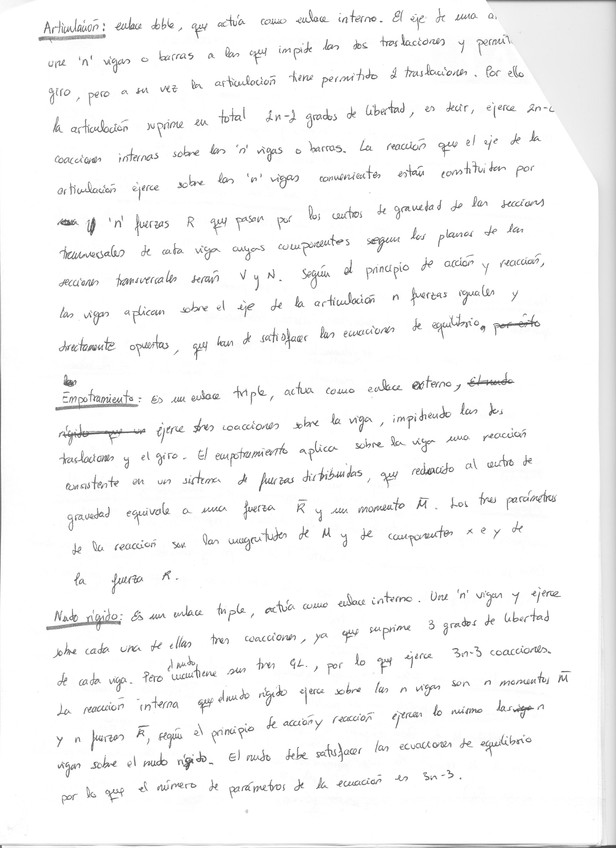 Articulación: enlace doble, que actúa como enlace interno. El eje de una a
une 'n' vigas o barras a las que impide las dos traslaciones y permit
giro, pero a su vez la articulación tiene permitido 2 traslaciones. Por ello
la articulación suprime en total 2n-2 grados de libertad, es decir, ejerce 2n-2
coacciones internas sobre las 'n' vigas o barras. La reacción que el eje de la
articulación ejerce sobre las 'n' vigas concurrentes están constituidas por
'n' fuerzas R que pasan por los centros de gravedad de las secciones
transversales de cada viga cuyas componentes según los planos de las
secciones transversales serán V y N. Según el principio de acción y reacción,
las vigas aplican sobre el eje de la articulación n fuerzas iguales y
directamente opuestas, que han de satisfacer las ecuaciones de equilibrio, por esto
las
Empotramiento: Es un enlace triple, actua como enlace externo, El nudo
rígido que un ejerce tres coacciones sobre la viga, impidiendo las dos
traslaciones y el giro. El empotramiento aplica sobre la viga una reacción
consistente en un sistema de fuerzas distribuidas, que reducido al centro de
gravedad equivale a una fuerza R̅ y un momento M̅. Los tres parámetros
de la reacción son las magnitudes de M y de componentes x e y de
la fuerza R.
Nudo rígido: Es un enlace triple, actúa como enlace interno. Une 'n' vigas y ejerce
sobre cada una de ellas tres coacciones, ya que suprime 3 grados de libertad
de cada viga. Pero el nudo mantiene sus tres GL., por lo que ejerce 3n-3 coacciones.
La reacción interna que el nudo rígido ejerce sobre las n vigas son n momentos M̅
y n fuerzas R̅, según el principio de acción y reacción ejercen lo mismo las n
vigas sobre el nudo rígido. El nudo debe satisfacer las ecuaciones de equilibrio
por lo que el número de parámetros de la ecuación es 3n-3.